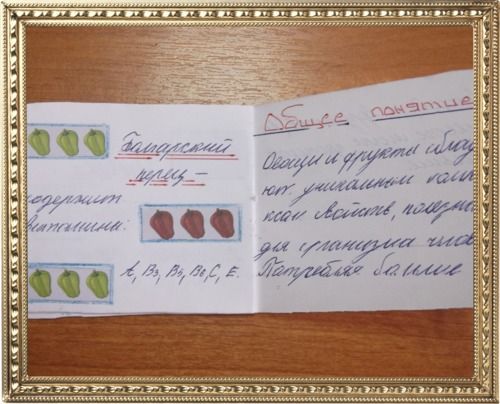 Болгарский
перец -
содержит
витамины:
А, В3, В5, В6, С, Е.
Общее понятие
Овощи и фрукты облад
ют уникальным комп
ксам свойств, полезны
для организма челов
Потребляя больше